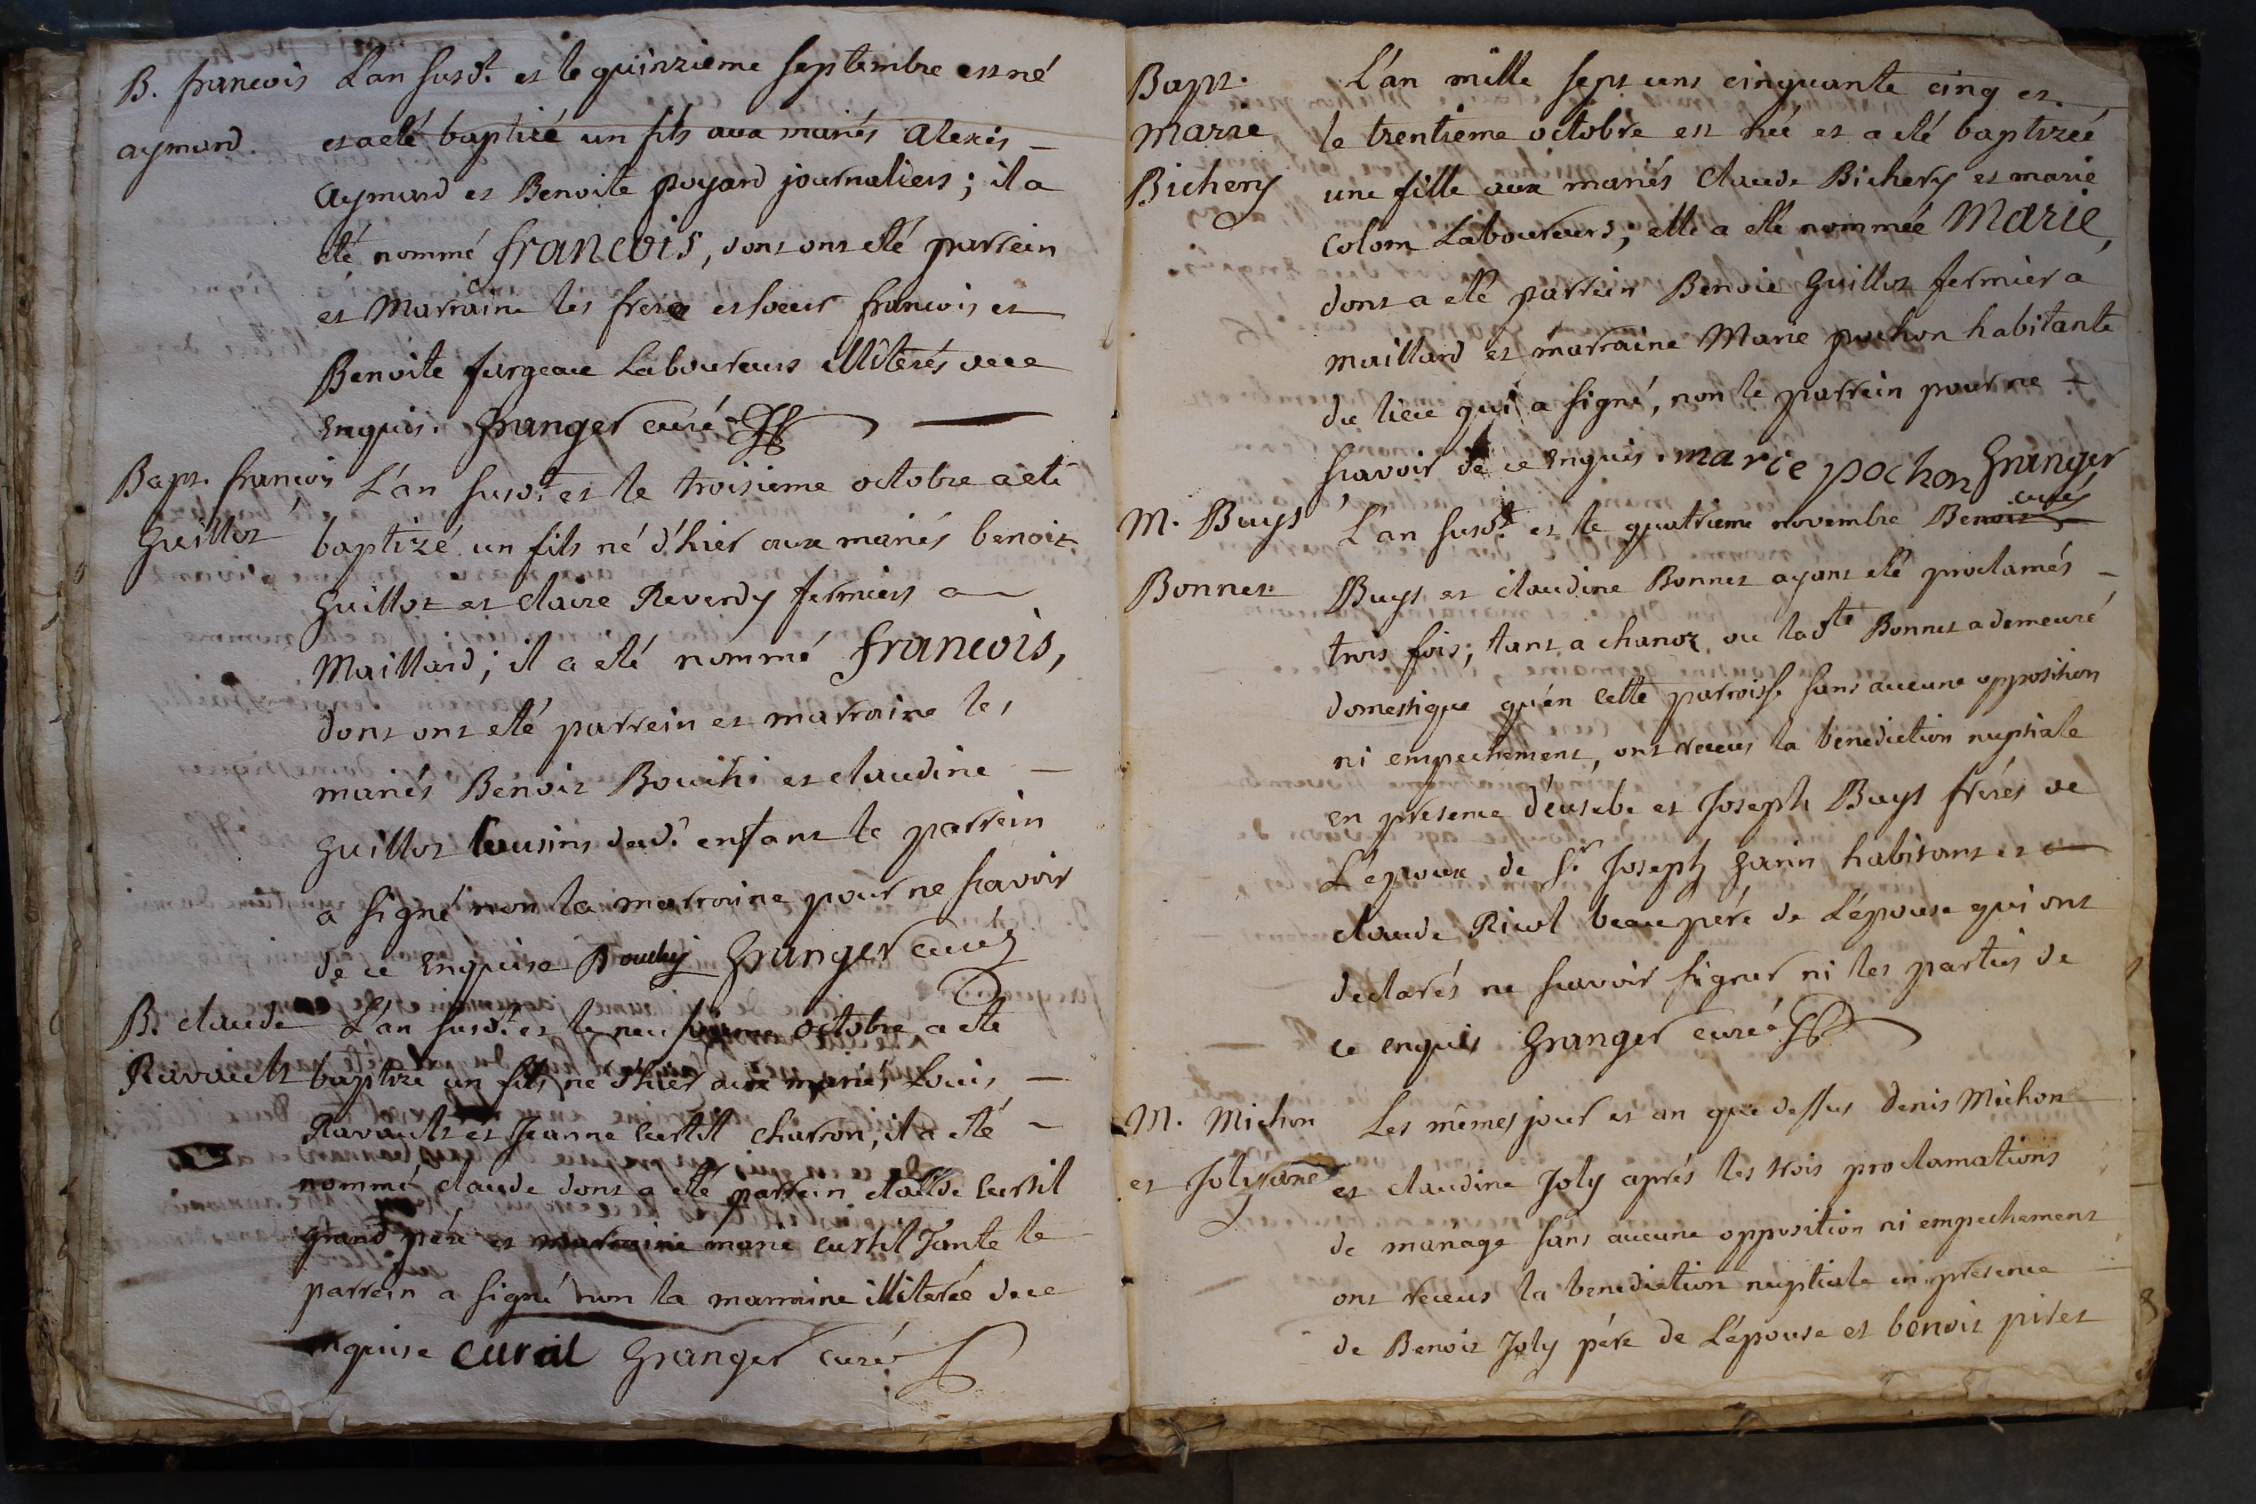 B. francois
aymard.
L'an susd.t et le quinzieme septembre est né
et a eté baptizé un fils aux mariés alexis –
aymard et Benoite poyard journaliers ; il a
été nommé francois, dont ont eté parrein
et Marraine les frere et soeur francois et
Benoite furgeaue Laboureurs illiterés de ce
enquis. Granger curé
Bapt. francois
Guillot
L'an susd.t et le troisieme octobre a eté
baptizé un fils né d'hier aux mariés benoit
Guillot et claire Reverdy fermiers a
Maillard ; il a eté nommé francois,
dont ont eté parrein et marraine les
mariés Benoit Bouchi et claudine –
Guillot cousins dud.t enfant le parrein
a signé non la marraine pour ne scavoir
de ce enquise Bouchy Granger curé
B. claude
Ravault
L'an susd.t et le neuf octobre a eté
baptizé un fils né d'hier aux mariés Louis –
Ravault et Jeanne curtil charron, il a eté –
nommé claude dont a eté parrein claude curtil
grand père et marraine marie curtil Tante le
parrein a signé non la marraine illiterée de ce
enquise curtil Granger curé
Bapt.
Marie
Bichery
L'an mille sept cens cinquante cinq et
le trentieme octobre est née et a eté baptizée
une fille aux mariés claude Bichery et marie
colom Laboureurs ; elle a eté nommée Marie,
dont a eté parrein Benoit Guillot fermier a
maillard et marraine Marie pochon habitante
du lieu qui a signé, non le parrein pour ne
scavoir de ce enquis. marie pochon Granger
curé
M. Buys
Bonnet
L'an susd.t et le quatrieme novembre Benoit
Buys et claudine Bonnet ayant eté proclamés –
trois fois ; tant a chanoz ou lad.te Bonnet a demeuré
domestique qu'en cette parroisse sans aucune opposition
ni empechement, ont receus la benediction nuptiale
en presence d'eusebe et Joseph Buys frères de
L'epoux de S.r Joseph Garin habitant et
claude Ricol beau père de L'épouse qui ont
declarés ne scavoir signer ni les parties de
ce enquis Granger curé
M. Michon
et Joly
Les mêmes jour et an que dessus denis Michon
et claudine Joly aprés les trois proclamations
de mariage sans aucune opposition ni empechement
ont receus la benediction nuptiale en presence
de Benoit Joly père de L'épouse et benoit pivet